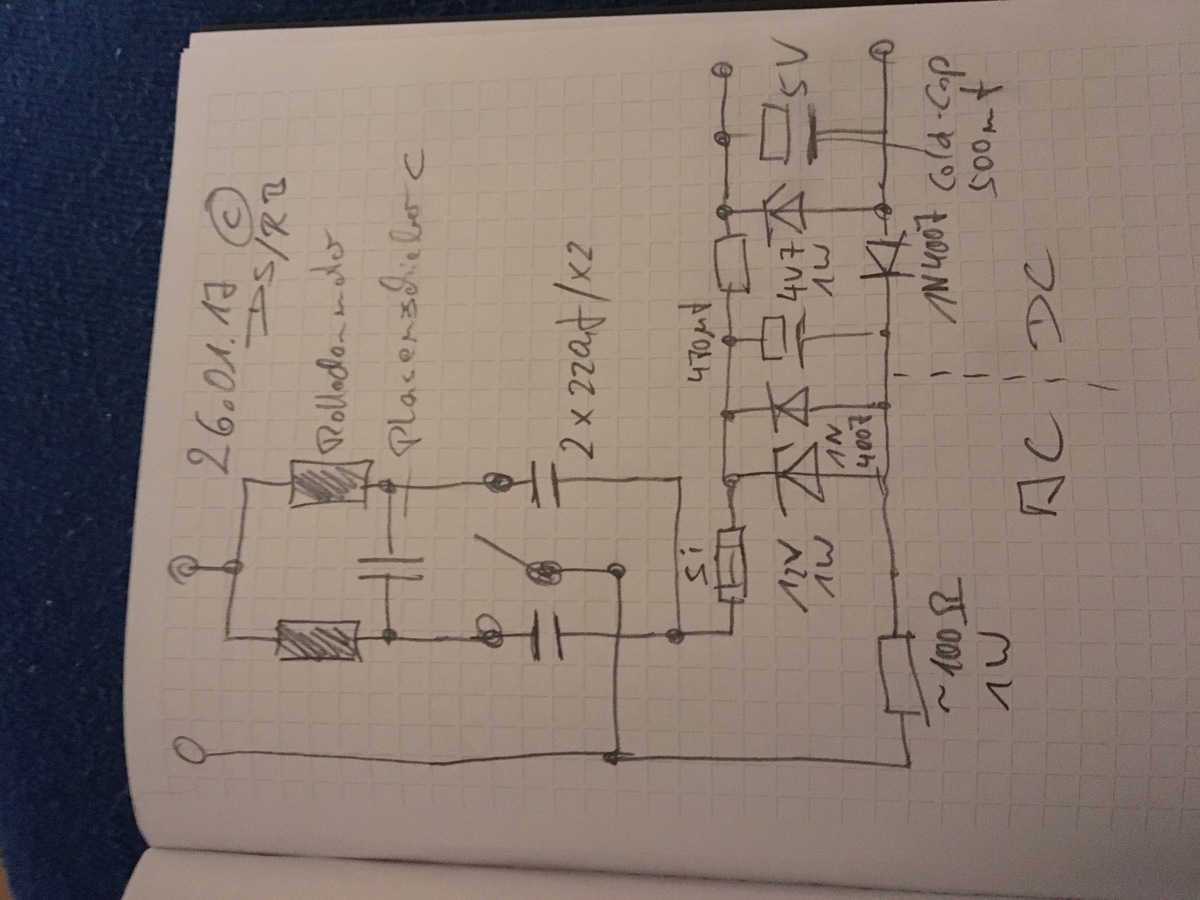 26.01.17 ©
DS/RB
Rolladenmotor
Phasenschieber C
2 x 220nf/X2
Si
12V
1W
1N
4007
470µf
4V7
1W
5V
1N4007
Gold-Cap
500mf
~100Ω
1W
AC
DC